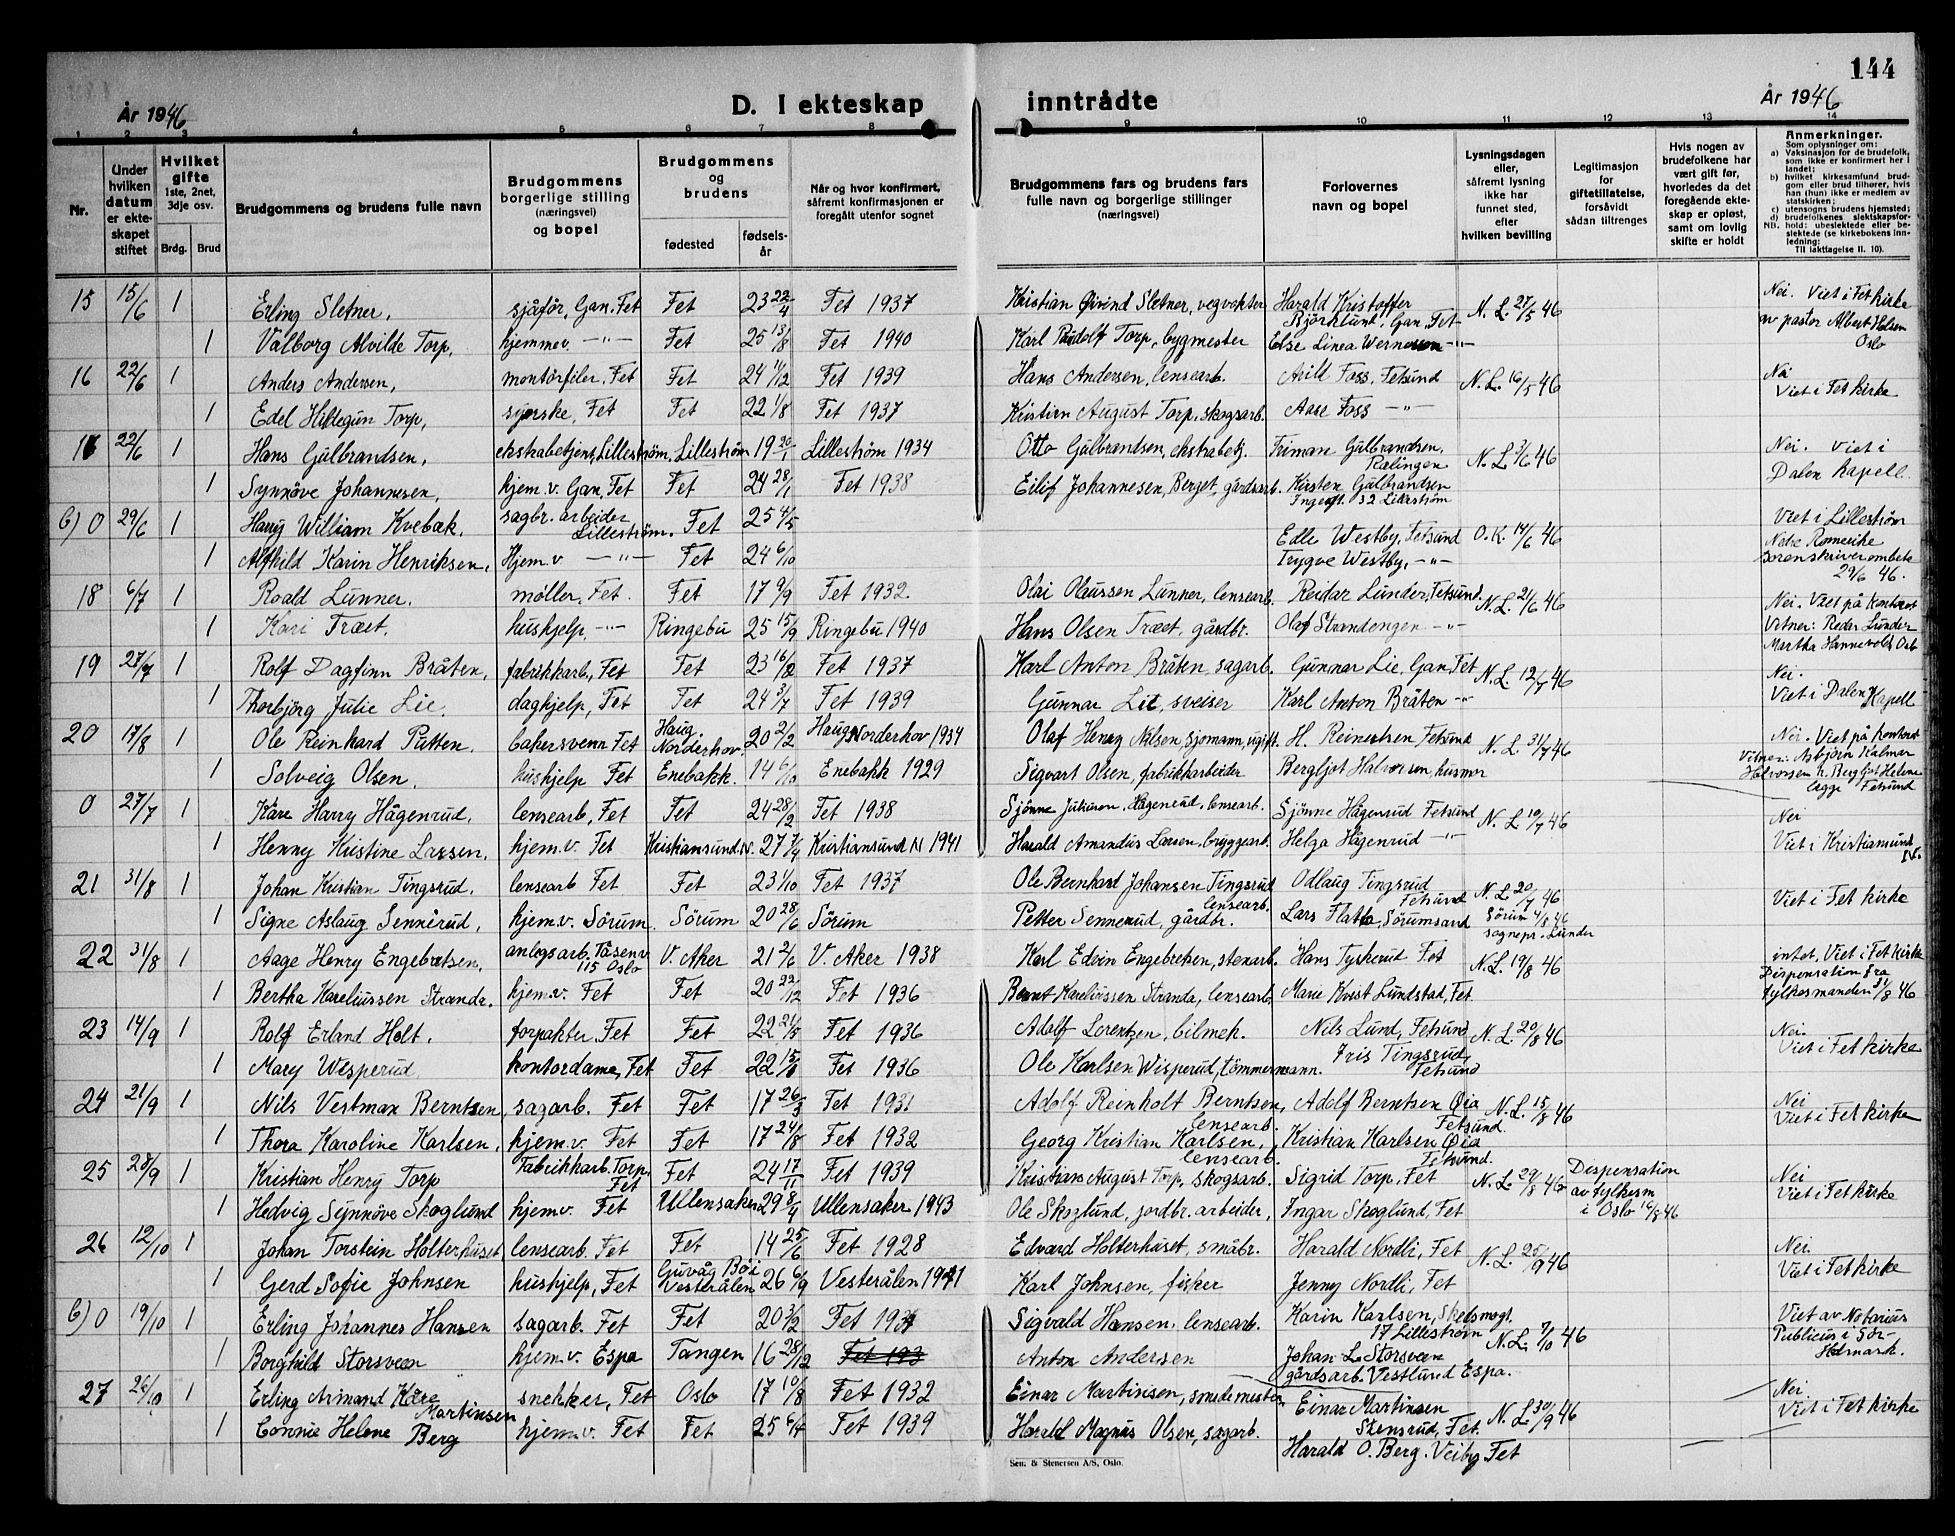 144
År 1946
D. I ekteskap inntrådte
År 1946
1 2 3 4 5 6 7 8 9 10 11 12 13 14
Nr.
Under hvilken datum er ekteskapet stiftet
Hvilket gifte 1ste, 2net, 3dje osv.
Brdg. Brud
Brudgommens og brudens fulle navn
Brudgommens borgerlige stilling (næringsvei) og bopel
Brudgommens og brudens
fødested
fødselsår
Når og hvor konfirmert, såfremt konfirmasjonen er foregått utenfor sognet
Brudgommens fars og brudens fars fulle navn og borgerlige stillinger (næringsvei)
Forlovernes navn og bopel
Lysningsdagen eller, såfremt lysning ikke har funnet sted, efter hvilken bevilling
Legitimasjon for giftetillatelse, forsåvidt sådan tiltrenges
Hvis nogen av brudefolkene har vært gift før, hvorledes da det foregående ekteskap er opløst, samt om lovlig skifte er holdt
Anmerkninger.
Som oplysninger om:
a) Vaksinasjon for de brudefolk, som ikke er konfirmert her i landet;
b) hvilket kirkesamfund brudgom eller brud tilhører, hvis han (hun) ikke er medlem av statskirken;
c) utensogns brudens hjemsted;
d) brudefolkenes slektskapsforhold: ubeslektede eller beslektede (se kirkebokens innledning:
NB. Til iakttagelse II. 10).
15 15/6 1 Erling Sletner, sjåfør, Gan. Fet Fet 23 22/4 Fet 1937 Kristian Øivind Sletner, vegvokter Harald Kristoffer Bjørklund, Gan, Fet N. L. 27/5 46 Nei. Viet i Fet kirke
1 Valborg Alvilde Torp, hjemmev. -"- Fet 25 13/8 Fet 1940 Karl Rudolf Torp, bygmester Else Linea Wernersen -"- av pastor Albert Helsen Oslo
16 22/6 1 Anders Andersen, montørfiler, Fet Fet 24 Fet 1939 Hans Andersen, lensearb. Arild Foss, Fetsund N. L. 16/5 46 Nei Viet i Fet kirke
1 Edel Hildegun Torp, syerske, Fet Fet 22 1/8 Fet 1937 Kristian August Torp, skogsarb. Aase Foss -"-
17 22/6 1 Hans Gulbrandsen, ekstrabetjent, Lillestrøm. Lillestrøm 19 20/1 Lillestrøm 1934 Otto Gulbrandsen, ekstrabetj. Frimann Gulbrandsen, Rælingen N. L. 3/6 46 Nei. Viet i
1 Synnøve Johannesen, hjem.v. Gan, Fet Fet 24 28/1 Fet 1938 Eilif Johannesen, Berget, gårdsarb. Kirsten Gulbrandsen 32 Lillestrøm Dalen kapell.
b) 0 29/6 1 Harry William Kvebæk, sagbr. arbeider Lillestrøm. Fet 25 4/5 Edle Westby, Fetsund O. K. 14/6 46 Viet i Lillestrøm
1 Alfhild Karin Henriksen, Hjem.v -"- Fet 24 6/10 Trygve Westby, -"- Nedre Romerike sorenskriverembete 29/6 46.
18 6/7 1 Roald Lunner. møller, Fet. Fet 17 9/9 Fet 1932. Olai Olaussen Lunner, lensearb. Reidar Lunder, Fetsund. N. L. 21/6 46 Nei. Viet på kontoret
1 Kari Træet. hushjelp, -"- Ringebu 25 15/9 Ringebu 1940 Hans Olsen Træet, gårdbr. Olaf Strandengen -"- Vitner: Reidar Lunder Martha Hannevold, Oslo
19 27/7 1 Rolf Dagfinn Bråten, fabrikkarb., Fet Fet 23 Fet 1937 Karl Anton Bråten, sagarb. Gunnar Lie, Gan, Fet N. L. 12/7 46 Nei.
1 Thorbjörg Julie Lie. daghjelp, Fet Fet 24 3/7 Fet 1939 Gunnar Lie, sveiser Karl Anton Bråten -"- Viet i Dalen Kapell
20 17/8 1 Ole Reinhard Putten. bakersvenn Fet Haug, Norderhov. 20 2/2 Haug, Norderhov 1934 Olaf Henry Nilsen, sjømann, ugift. H. Reinertsen Fetsund N. L. 31/7 46 Nei. Viet på kontoret
1 Solveig Olsen. hushjelp Fet Enebakk. 14 6/10 Enebakk 1929 Sigvart Olsen, fabrikkarbeider Bergljot Halvorsen, husmor Vitner: Asbjørn Kalmar Halvorsen h. Bergljot Helene legge Fetsund
0 27/7 1 Kåre Harry Hågenrud. lensearb, Fet Fet 24 28/2 Fet 1938 Sjønne Juliusen Hågenrud, lensearb. Sjønne Hågenrud Fetsund N. L. 10/7 46 Nei
1 Henny Kristine Larsen. hjem.v. Fet Kristiansund N. 27 7/4 Kristiansund N 1941 Harald Amandus Larsen, bryggearb. Helga Hågenrud -"- Viet i Kristiansund N.
21 31/8 1 Johan Kristian Tingsrud. lensearb Fet Fet 23 1/10 Fet 1937 Ole Bernhard Johansen Tingsrud lensearb. Odlaug Tingsrud Fetsund N. L. 20/7 46 Viet i Fet kirke
1 Signe Aslaug Sennerud, hjem.v. Sörum Sörum 20 28/6 Sörum Petter Sennerud, gårdbr. Lars Flatta, Sörumsand Sörum 4/8 46 sognepr. Lunder
22 31/8 1 Aage Henry Engebretsen, anlegsarb. Tåsenv. 115 Oslo V. Aker 21 2/6 V. Aker 1938 Karl Edvin Engebretsen, stenarb. Hans Tyskerud Fet N. L. 19/8 46 intet, Viet i Fet kirke
1 Bertha Kareliussen Stranda. hjem.v. Fet Fet 20 22/12 Fet 1936 Bernt Kareliussen Stranda, lensearb. Marie Kvist Lundstad, Fet Dispensation fra fylkesmanden 31/8 46
23 14/9 1 Rolf Erland Holt. forpakter, Fet Fet 22 21/5 Fet 1936 Adolf Lorentzen, bilmek. Nils Lund, Fetsund N. L. 20/8 46 Nei. Viet i Fet kirke
1 Mary Wisperud kontordame, Fet Fet 22 Fet 1936 Ole Karlsen Wisperud, tömmermann. Iris Tingsrud Fetsund
24 21/9 1 Nils Vestman Berntsen, sagarb. Fet Fet 17 26/3 Fet 1931 Adolf Reinholt Berntsen, lensearb. Adolf Berntsen Øia Fetsund. N. L. 15/8 46 Nei
1 Thora Karoline Karlsen. hjem.v. Fet Fet 17 24/8 Fet 1932 Georg Kristian Karlsen, lensearb. Kristian Karlsen Øia Fetsund. Viet i Fet kirke
25 28/9 1 Kristian Henry Torp Fabrikkarb. Torp, Fet Fet 24 17/11 Fet 1939 Kristian August Torp, skogsarb. Sigrid Torp, Fet N. L. 29/8 46 Dispensation av fylkesm i Oslo 16/8 46 Nei
1 Hedvig Synnöve Skoglund hjem.v. Fet Ullensaker 29 8/4 Ullensaker 1943 Ole Skoglund, jordbr. arbeider, Ingar Skoglund, Fet Viet i Fet kirke
26 12/10 1 Johan Torstein Holterhuset lensearb. Fet Fet 14 25/6 Fet 1928 Edvard Holterhuset, småbr. Harald Nordli, Fet N. L. 25/9 46 Nei.
1 Gerd Sofie Johnsen hushjelp, Fet Guvåg Bø i Vesterålen 26 6/9 Vesterålen 1941 Karl Johnsen, fisker Jenny Nordli, Fet Viet i Fet kirke
b) 0 19/10 1 Erling Johannes Hansen sagarb. Fet Fet 20 3/2 Fet 1934 Sigvald Hansen, lensearb. Karin Karlsen, 17 Lillestrøm N. L. 7/10 46 Viet av Notarius
1 Borghild Storsveen hjem.v. Espa Tangen 16 28/12 Fet 193 Anton Andersen Johan L. Storsveen gårdsarb. Vestlund Espa. Publicus i Sör-Hedmark.
27 26/10 1 Erling Armand Kåre Martinsen snekker, Fet Oslo 17 10/8 Fet 1932 Einar Martinsen, smedmester Einar Martinsen Stensrud, Fet. N. L. 30/9 46 Nei
1 Connie Helene Berg hjem.v. Fet Fet 25 Fet 1939 Harald Magnus Olsen, sagarb. Harald O. Berg. Veiby Fet Viet i Fet kirke
Sem & Stenersen A/S, Oslo.